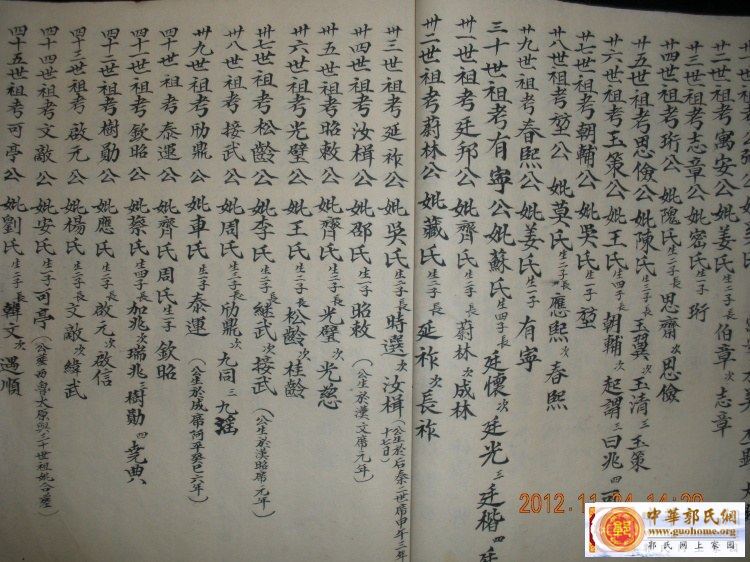 廿二世祖考寓安公妣姜氏生二子長伯章次志章
廿三世祖考志章公妣密氏生一子珩
廿四世祖考珩公妣隗氏生二子長思齋次思儉
廿五世祖考思儉公妣陳氏生三子長玉翼次玉清三玉策
廿六世祖考玉策公妣王氏生四子長朝輔次起謂三曰兆四
廿七世祖考朝輔公妣吳氏生一子堃
廿八世祖考堃公妣莫氏生二子長應熙次春熙
廿九世祖考春熙公妣姜氏生一子有寧
三十世祖考有寧公妣蘇氏生四子長廷懷次廷光三廷楷四廷
卅一世祖考廷邦公妣齊氏生二子長蔚林次成林
卅二世祖考蔚林公妣藏氏生二子長延祚次長祚
卅三世祖考延祚公妣吳氏生二子長時選次汝楫(公生於后秦二世席申年三年十七日)
卅四世祖考汝楫公妣邵氏生一子昭敕(公生於漢文席元年)
卅五世祖考昭敕公妣齊氏生二子長光璧次光慈
卅六世祖考光璧公妣王氏生二子長松齡次桂齡
卅七世祖考松齡公妣李氏生二子長継武次接武(公生於漢昭席元年)
卅八世祖考接武公妣周氏生三子長劤鼎次九同三九滛
卅九世祖考劤鼎公妣車氏生一子泰運(公生於成席阿平癸巳六年)
四十世祖考泰運公妣齊氏周氏生一子欽昭
四十一世祖考欽昭公妣蔡氏生四子長加兆次瑞兆三樹勛四堯典
四十二世祖考樹勛公妣應氏生二子長啟元次啟信
四十三世祖考啟元公妣楊氏生二子長文敵次緯武
四十四世祖考文敵公妣安氏生一子可亭(公葬西魯太原與三十世祖姚合墓)
四十五世祖考可亭公妣劉氏生二子長韓文次遇順
2012.11.24 14:20
中華郭氏網
www.guohome.org
郭氏網上家園